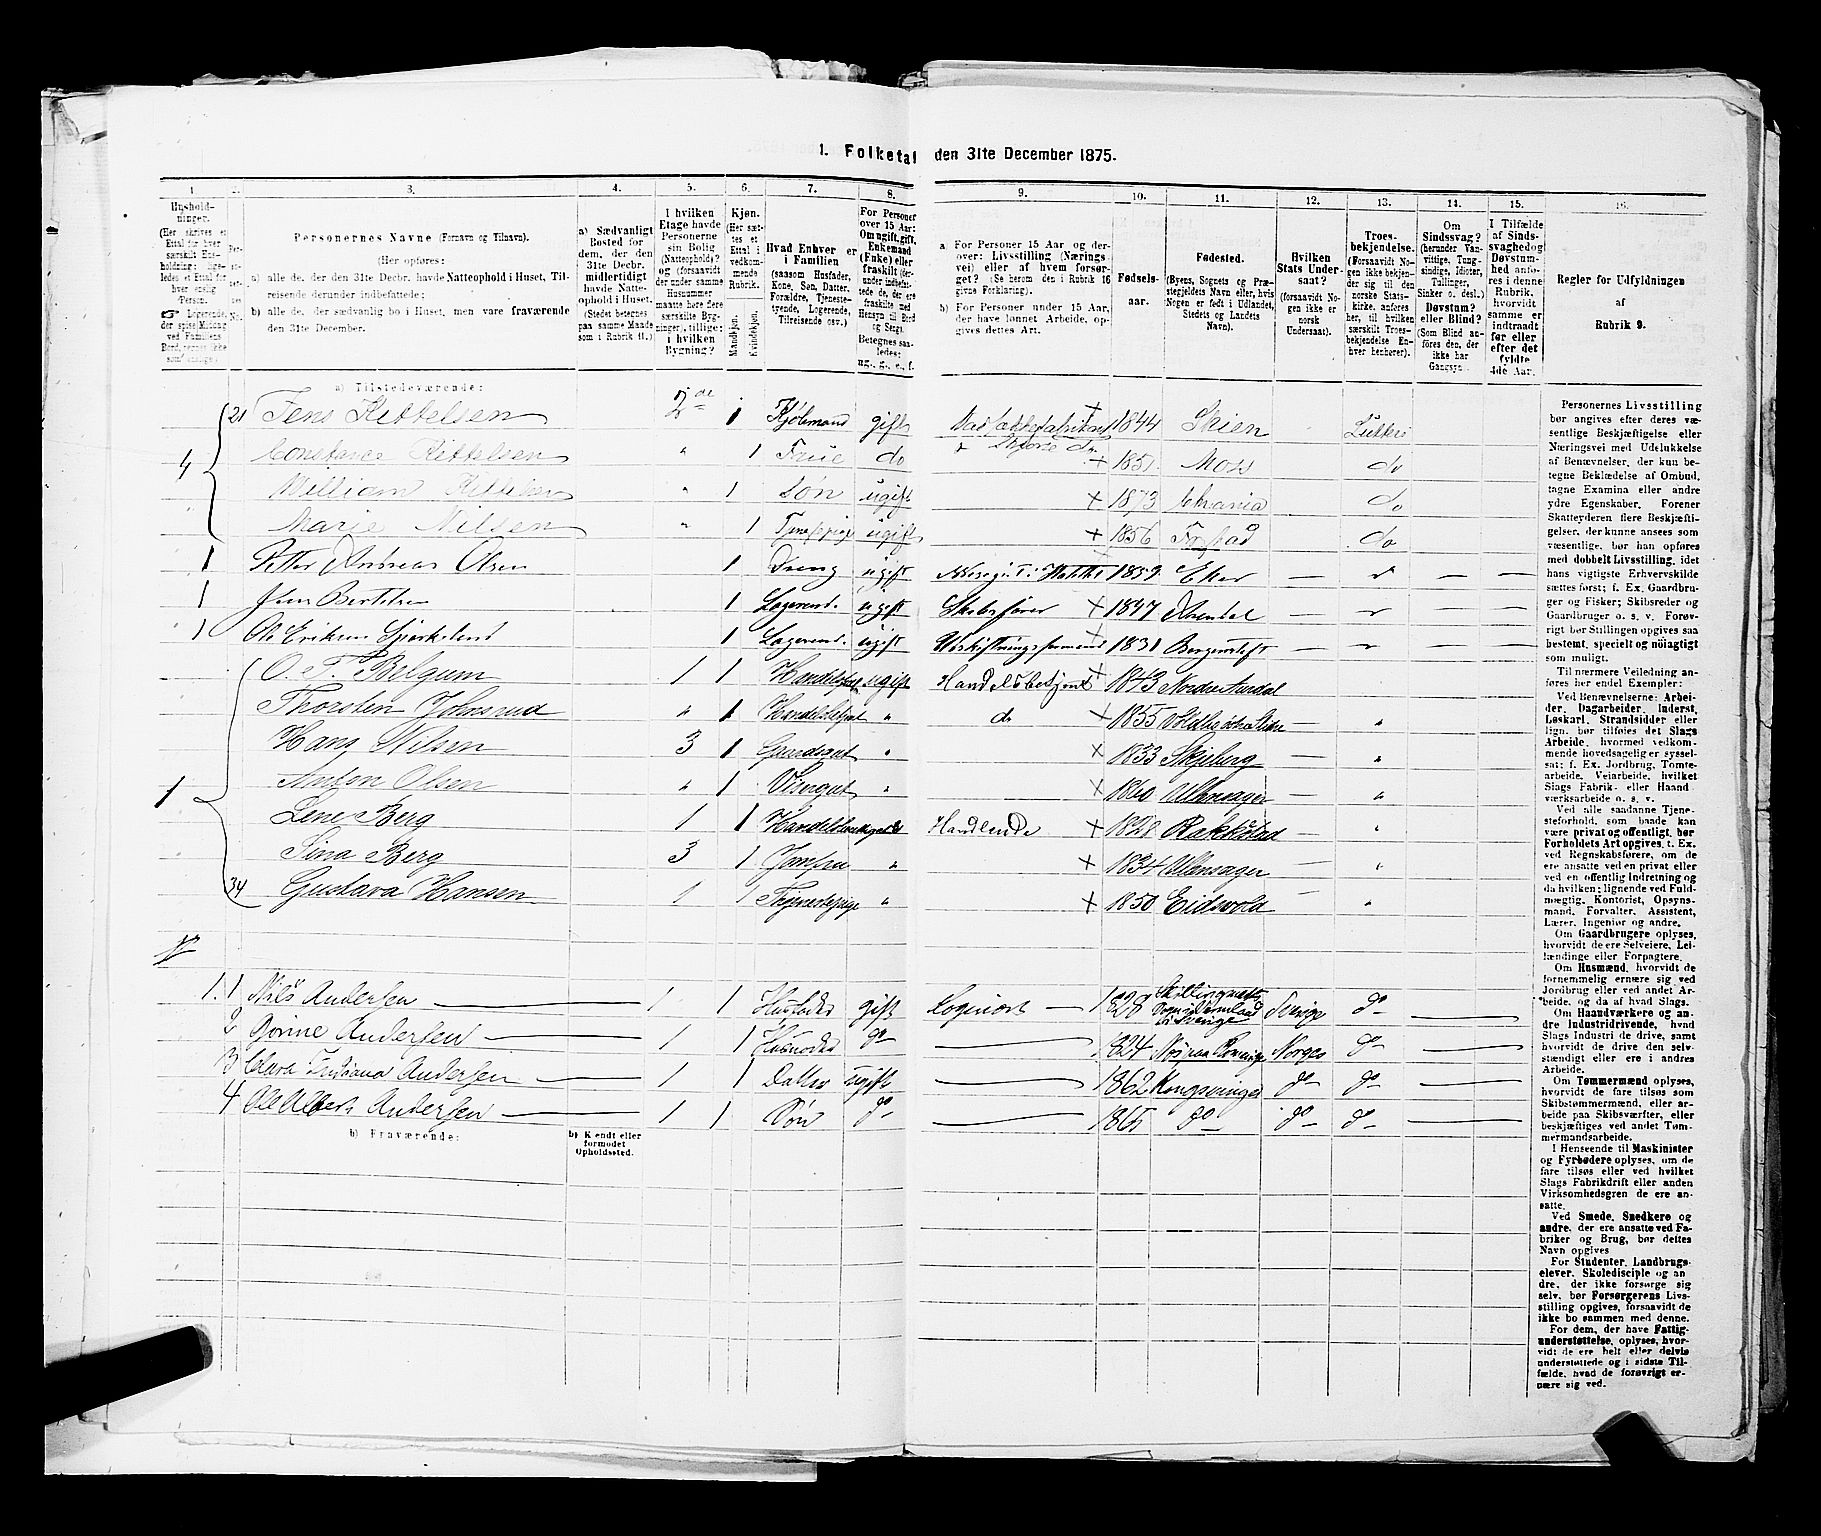 1. Folketal den 31te December 1875.
1. 2. 3. 4. 5. 6. 7. 8. 9. 10. 11. 12. 13. 14. 15. 16.
Husholdninger. (Her skrives et Ettal for hver særskilt Husholdning;
Personernes Navne (Fornavn og Tilnavn).
(Her opføres:
a) alle de, der den 31te Decbr. havde Natteophold i Huset, Tilreisende derunder indbefattede;
b) alle de, der sædvanlig bo i Huset, men vare fraværende den 31te December.
a) Sædvanligt Bosted for dem, der den 31te Decbr. midlertidigt havde Natteophold i Huset. (Stedet betegnes paa samme Maade som i Rubrik 11.)
I hvilken Etage havde Personerne sin Bolig (Natteophold)? og (forsaavidt der under samme Husnummer maatte høre flere særskilte Bygninger), tillige: i hvilken Bygning?
Kjøn. (Her sættes et Ettal i vedkommende Rubrik.
Mandkjøn. Kvindekjøn.
Hvad Enhver er i Familien (saasom Husfader, Kone, Søn, Datter, Forældre, Tjenestetyende, Logerende, Tilreisende osv.)
For Personer over 15 Aar: Om ugift, gift, Enkemand (Enke) eller fraskilt
Betegnes saaledes: ug., g., e., f.
a. For Personer 15 Aar og derover: Livsstilling (Næringsvei) eller af hvem forsørget? (Se herom den i Rubrik 16 givne Forklaring).
b) For Personer under 15 Aar, der have lønnet Arbeide, opgives dettes Art.
Fødselsaar.
Fødested. (Byens, Sognets og Præstegjeldets Navn eller, hvis Nogen er født i Udlandet, Stedets og Landets Navn).
Hvilken Stats Undersaat? (forsaavidt Nogen ikke er norsk Undersaat).
Troesbekjendelse. (Forsaavidt Nogen ikke bekjender sig til den norske Statskirke, anføres her, til hvilken særskilt Troesbekjendelse Enhver henhører).
Om Sindssvag? (herunder Vanvittige, Tungsindige, Idioter, Tullinger, Sinker o. desl.) Døvstum? eller Blind? (Som Blind anføres den, der ikke har Gangsyn).
I Tilfælde af Sindssvaghed og Døvstumhed anføres i denne Rubrik, hvorvidt samme er indtraadt før eller efter det fyldte 4de Aar.
Regler for Udfyldningen af Rubrik 9.
a) Tilstedeværende:
21 Jens Kittelsen 2de 1 Kjøbmand gift + 1844 Skien Luthers
4 Constance Kittelsen " 1 Frue do + 1851 Moss do
William Kittelsen " 1 Søn ugift + 1873 Chrania do
Marie Nilsen " 1 ugift + 1856 do
1 Petter Andreas Olsen 1 Dreng ugift 1859 Eker
1 Jens Bertelsen 1 Logerend. ugift Skibsfører + 1847 Arendal
1 1 Logerend. ugift + 1831 Bergenstift
O. T. Belgum 1 1 ugift Handelsbetjent + 1843 Nordre Aurdal
Thorsten Johnsrud " 1 Handelsbetjent " do + 1855 "
Hans Nilsen 3 1 Gaardsgut " + 1833 Skjeberg "
1 Anton Olsen " 1 Visergut " + 1860 Ullensager "
Lene Berg 1 1 Handlende + 1828 Rakkestad "
Sina Berg 3 1 Jomfru " + 1834 Ullensager "
34 Gustava Hansen 1 1 Tjenestepige " + 1850 Eidsvold "
1. 1 Nils Andersen 1 1 Husfader gift Logivært 1828 Sverige do
2 Gorine Andersen 1 1 Husmoder do 1824 Norges do
3 Clara Andersen 1 1 Datter ugift 1862 Kongsvinger do do
4 Ole Albert Andersen 1 1 Søn do 1865 do do do
b) Fraværende:
b) Kjendt eller formodet Opholdssted.
Personernes Livsstilling bør angives efter deres væsentlige Beskjæftigelse eller Næringsvei med Udelukkelse af Benævnelser, der kun betegne Beklædelse af Ombud, tagne Examina eller andre ydre Egenskaber. Forener Skatteyderen flere Beskjæftigelser, der kunne ansees som væsentlige, bør han opføres med dobbelt Livsstilling, idet hans vigtigste Erhvervskilde sættes først; f. Ex. Gaardbruger og Fisker; Skibsreder og Gaardbruger o. s. v. Forøvrigt bør Stillingen opgives saa bestemt, specielt og nøiagtigt som muligt.
Til nærmere Veiledning anføres her endel Exempler:
Ved Benævnelserne: Arbeider, Dagarbeider, Inderst, Løskarl, Strandsidder eller lign. bør tilføies det Slags Arbeide, hvormed vedkommende hovedsagelig er sysselsat; f. Ex. Jordbrug, Tomtearbeide, Veiarbeide, hvilket Slags Fabrik- eller Haandværksarbeide o. s. v.
Ved alle saadanne Tjenesteforhold, som baade kan være privat og offentligt, bør Forholdets Art opgives, t. Ex. ved Regnskabsførere, om de ere ansatte ved en privat eller ved en offentlig Indretning og da hvilken; lignende ved Fuldmægtig, Kontorist, Opsynsmand, Forvalter, Assistent, Lærer, Ingeniør og andre.
Om Gaardbrugere oplyses, hvorvidt de ere Selveiere, Leilændinge eller Forpagtere.
Om Husmænd, hvorvidt de fornemmelig ernære sig ved Jordbrug eller ved andet Arbeide, og da af hvad Slags.
Om Haandværkere og andre Industridrivende, hvad Slags Industri de drive, samt hvorvidt de drive den selvstændigt eller ere i andres Arbeide.
Om Tømmermænd oplyses, hvorvidt de fare tilsøs som Skibstømmermænd, eller arbeide paa Skibsværfter, eller beskjæftiges ved andet Tømmermandsarbeide.
I Henseende til Maskinister og Fyrbødere oplyses, om de fare tilsøs eller ved hvilket Slags Fabrikdrift eller anden Virksomhedsgren de ere ansatte.
Ved Smede, Snedkere og andre, der ere ansatte ved Fabriker og Brug, bør dettes Navn opgives
For Studenter, Landbrugselever, Skoledisciple og andre, der ikke forsørge sig selv, bør Forsørgerens Livsstilling opgives, forsaavidt de ikke bo sammen med denne.
For dem, der have Fattigunderstøttelse, oplyses, hvorvidt de ere helt eller delvis understøttede og i sidste Tilfælde, hvad de forøvrigt ernære sig ved.